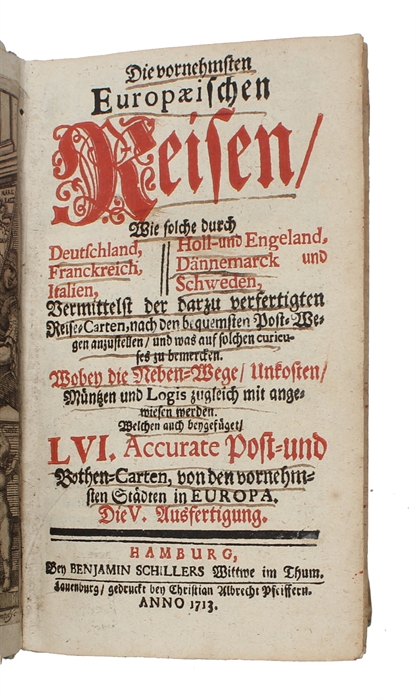 Die vornehmsten
Europæischen
Reisen/
Wie solche durch
Deutschland,
Franckreich,
Italien,
Holl- und Engeland,
Dännemarck und
Schweden,
Vermittelst der darzu verfertigten
Reise-Carten, nach den bequemsten Post-We-
gen anzustellen/ und was auf solchen curieu-
ses zu bemercken.
Wobey die Neben-Wege/ Unkosten/
Müntzen und Logis zugleich mit ange-
wiesen werden.
Welchen auch beygefüget/
LVI. Accurate Post- und
Bothen-Carten, von den vornehm-
sten Städten in EUROPA.
Die V. Ausfertigung.
HAMBURG,
Bey BENJAMIN SCHILLERS Wittwe im Thum.
Lauenburg/ gedruckt bey Christian Albrecht Pfeiffern.
ANNO 1713.